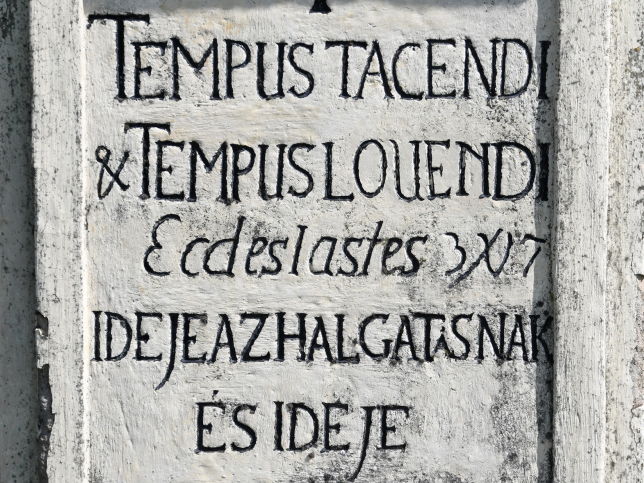 TEMPUS TACENDI
& TEMPUS LOUENDI
Ecclesiastes 3 XV 7
IDEJE AZ HALGATÁSNAK
ÉS IDEJE